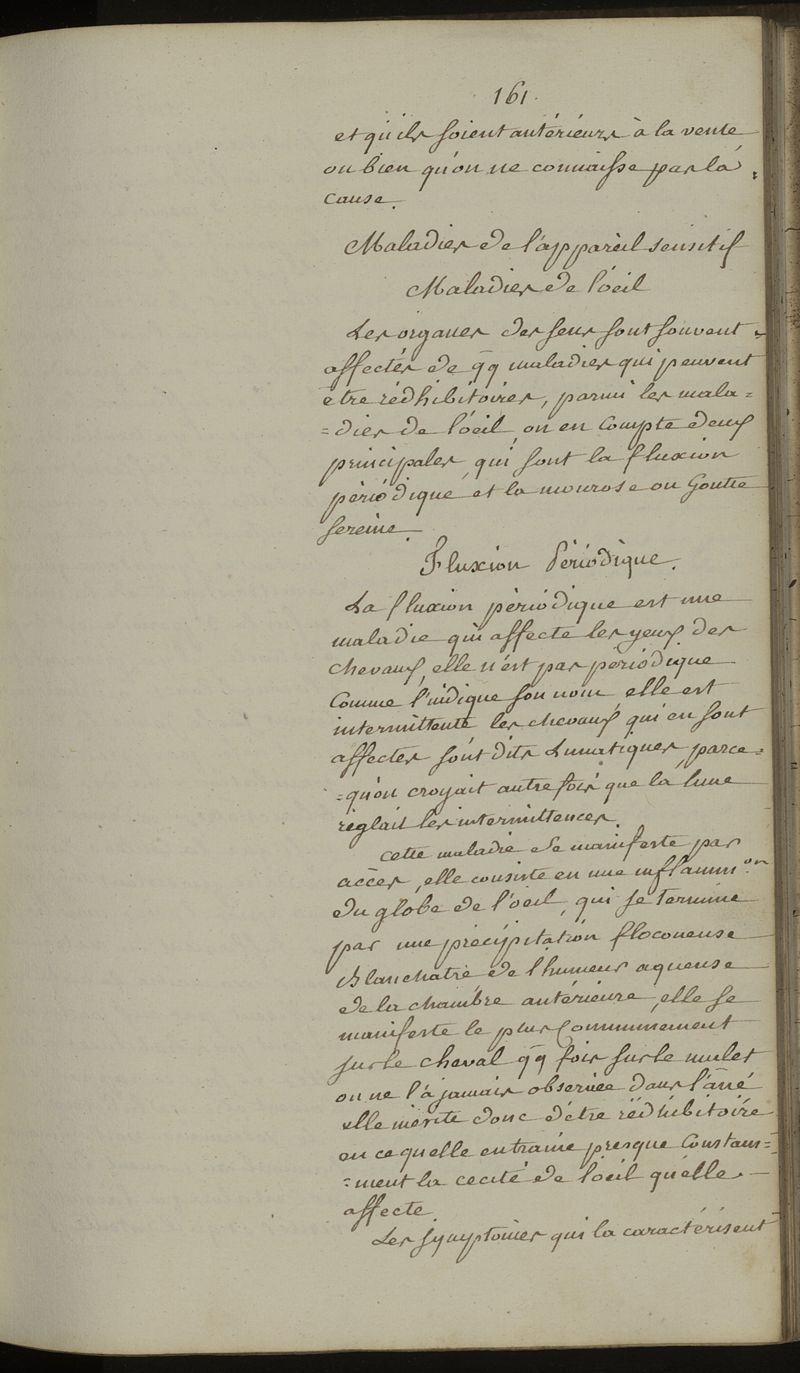 161.
et qu'ils soient antérieurs à la vente
ou bien qu'on ne connaisse pas la
cause.
Maladies de l'appareil sensitif
Maladies de l'oeil
Les organes des sens sont souvent
affectés de qq maladies qui peuvent
être rédhibitoires, parmi les mala=
=dies de l'oeil, on en compte deux
principales, qui sont la fluxion
périodique et la mourose ou Goutte
sereine.
Fluxion Périodique.
La fluxion périodique est une
maladie qui affecte les yeux des
chevaux, elle n'est pas périodique
comme l'indique son nom, elle est
intermittente les chevaux qui en sont
affectés sont dits Lunatiques, parce=
=qu'on croyait autrefois que la lune
réglait les intermittences.
Cette maladie se manifeste par
accès, elle consiste en une inflamm.on
du globe de l'oeil, qui se termine
par une précipitation floconeuse
Blanchatre de l'humeur aqueuse
de la chambre antérieure, elle se
manifeste le plus communement
sur le cheval qq fois sur le mulet
on ne l'a jamais observée dans l'âne
elle mérite donc d'être rédhibitoire
en ce quelle entraine presque constam=
=ment la cecité de l'oeil qu'elle
affecte.
Les symptômes qui la caractérisent